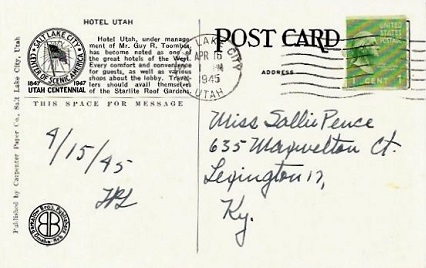 HOTEL UTAH
Hotel Utah, under manage-
ment of Mr. Guy R. Toombes,
has become noted as one of
the great hotels of the West.
Every comfort and convenience
for guests, as well as various
shops about the lobby. Travel-
ers should avail themselves
of the Starlite Roof Gardens.
SALT LAKE CITY
CENTER OF SCENIC AMERICA
1847 1947
UTAH CENTENNIAL
THIS SPACE FOR MESSAGE
Published by Carpenter Paper Co., Salt Lake City, Utah
4/15/45
POST CARD
ADDRESS
LAKE CITY
APR 16
PM
1945
UTAH
UNITED STATES
1 CENT 1
Miss Sallie Pence
635 Maxwelton Ct.
Lexington 17,
Ky.